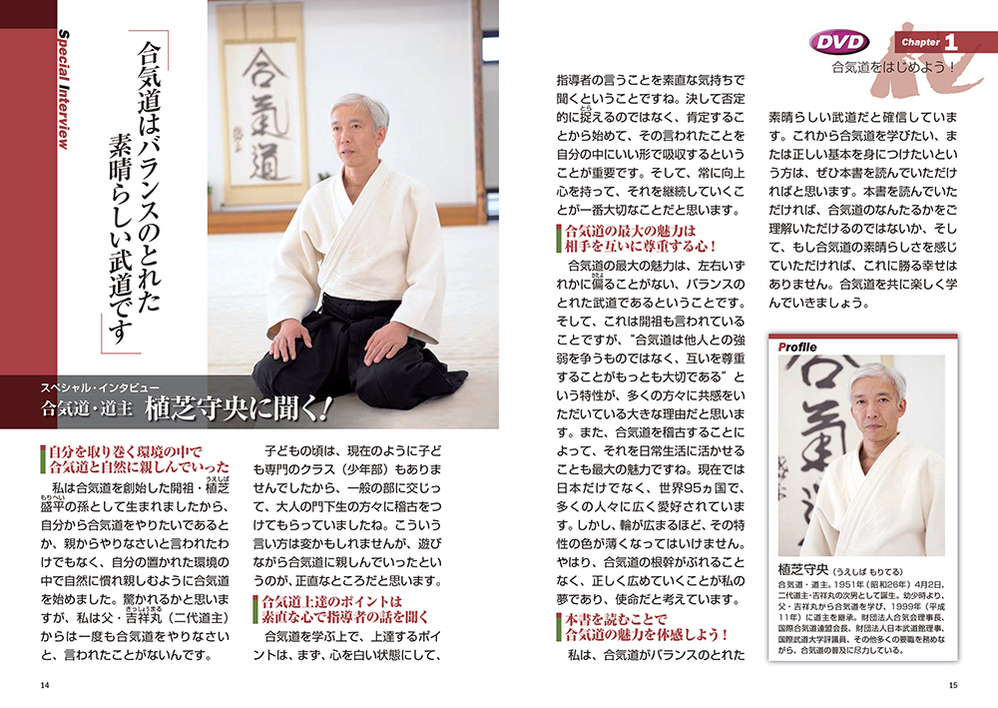 Special Interview
合気道はバランスのとれた
素晴らしい武道です
合氣道
スペシャル・インタビュー
合気道・道主 植芝守央に聞く！
自分を取り巻く環境の中で
合気道と自然に親しんでいった
私は合気道を創始した開祖・植芝
盛平の孫として生まれましたから、
自分から合気道をやりたいであると
か、親からやりなさいと言われたわ
けでもなく、自分の置かれた環境の
中で自然に慣れ親しむように合気道
を始めました。驚かれるかと思いま
すが、私は父・吉祥丸（二代道主）
からは一度も合気道をやりなさい
と、言われたことがないんです。
子どもの頃は、現在のように子ど
も専門のクラス（少年部）もありま
せんでしたから、一般の部に交じっ
て、大人の門下生の方々に稽古をつ
けてもらっていましたね。こういう
言い方は変かもしれませんが、遊び
ながら合気道に親しんでいったとい
うのが、正直なところだと思います。
合気道上達のポイントは
素直な心で指導者の話を聞く
合気道を学ぶ上で、上達するポイ
ントは、まず、心を白い状態にして、
14
DVD
Chapter 1
合気道をはじめよう！
指導者の言うことを素直な気持ちで
聞くということですね。決して否定
的に捉えるのではなく、肯定するこ
とから始めて、その言われたことを
自分の中にいい形で吸収するという
ことが重要です。そして、常に向上
心を持って、それを継続していくこ
とが一番大切なことだと思います。
合気道の最大の魅力は
相手を互いに尊重する心！
合気道の最大の魅力は、左右いず
れかに偏ることがない、バランスの
とれた武道であるということです。
そして、これは開祖も言われている
ことですが、“合気道は他人との強
弱を争うものではなく、互いを尊重
することがもっとも大切である”と
いう特性が、多くの方々に共感をい
ただいている大きな理由だと思いま
す。また、合気道を稽古することに
よって、それを日常生活に活かせる
ことも最大の魅力ですね。現在では
日本だけでなく、世界95ヵ国で、
多くの人々に広く愛好されていま
す。しかし、輪が広まるほど、その特
性の色が薄くなってはいけません。
やはり、合気道の根幹がぶれること
なく、正しく広めていくことが私の
夢であり、使命だと考えています。
本書を読むことで
合気道の魅力を体感しよう！
私は、合気道がバランスのとれた
素晴らしい武道だと確信していま
す。これから合気道を学びたい、ま
たは正しい基本を身につけたいとい
う方は、ぜひ本書を読んでいただけ
ればと思います。本書を読んでいた
だければ、合気道のなんたるかをご
理解いただけるのではないか、そし
て、もし合気道の素晴らしさを感じ
ていただければ、これに勝る幸せは
ありません。合気道を共に楽しく学
んでいきましょう。
Profile
植芝守央（うえしば もりてる）
合気道・道主。1951年（昭和26年）4月2日、
二代道主・吉祥丸の次男として誕生。幼少時より、
父・吉祥丸から合気道を学び、1999年（平成
11年）に道主を継承。財団法人合気会理事長、
国際合気道連盟会長、財団法人日本武道館理事、
国際武道大学評議員、その他多くの要職を務めな
がら、合気道の普及に尽力している。
15